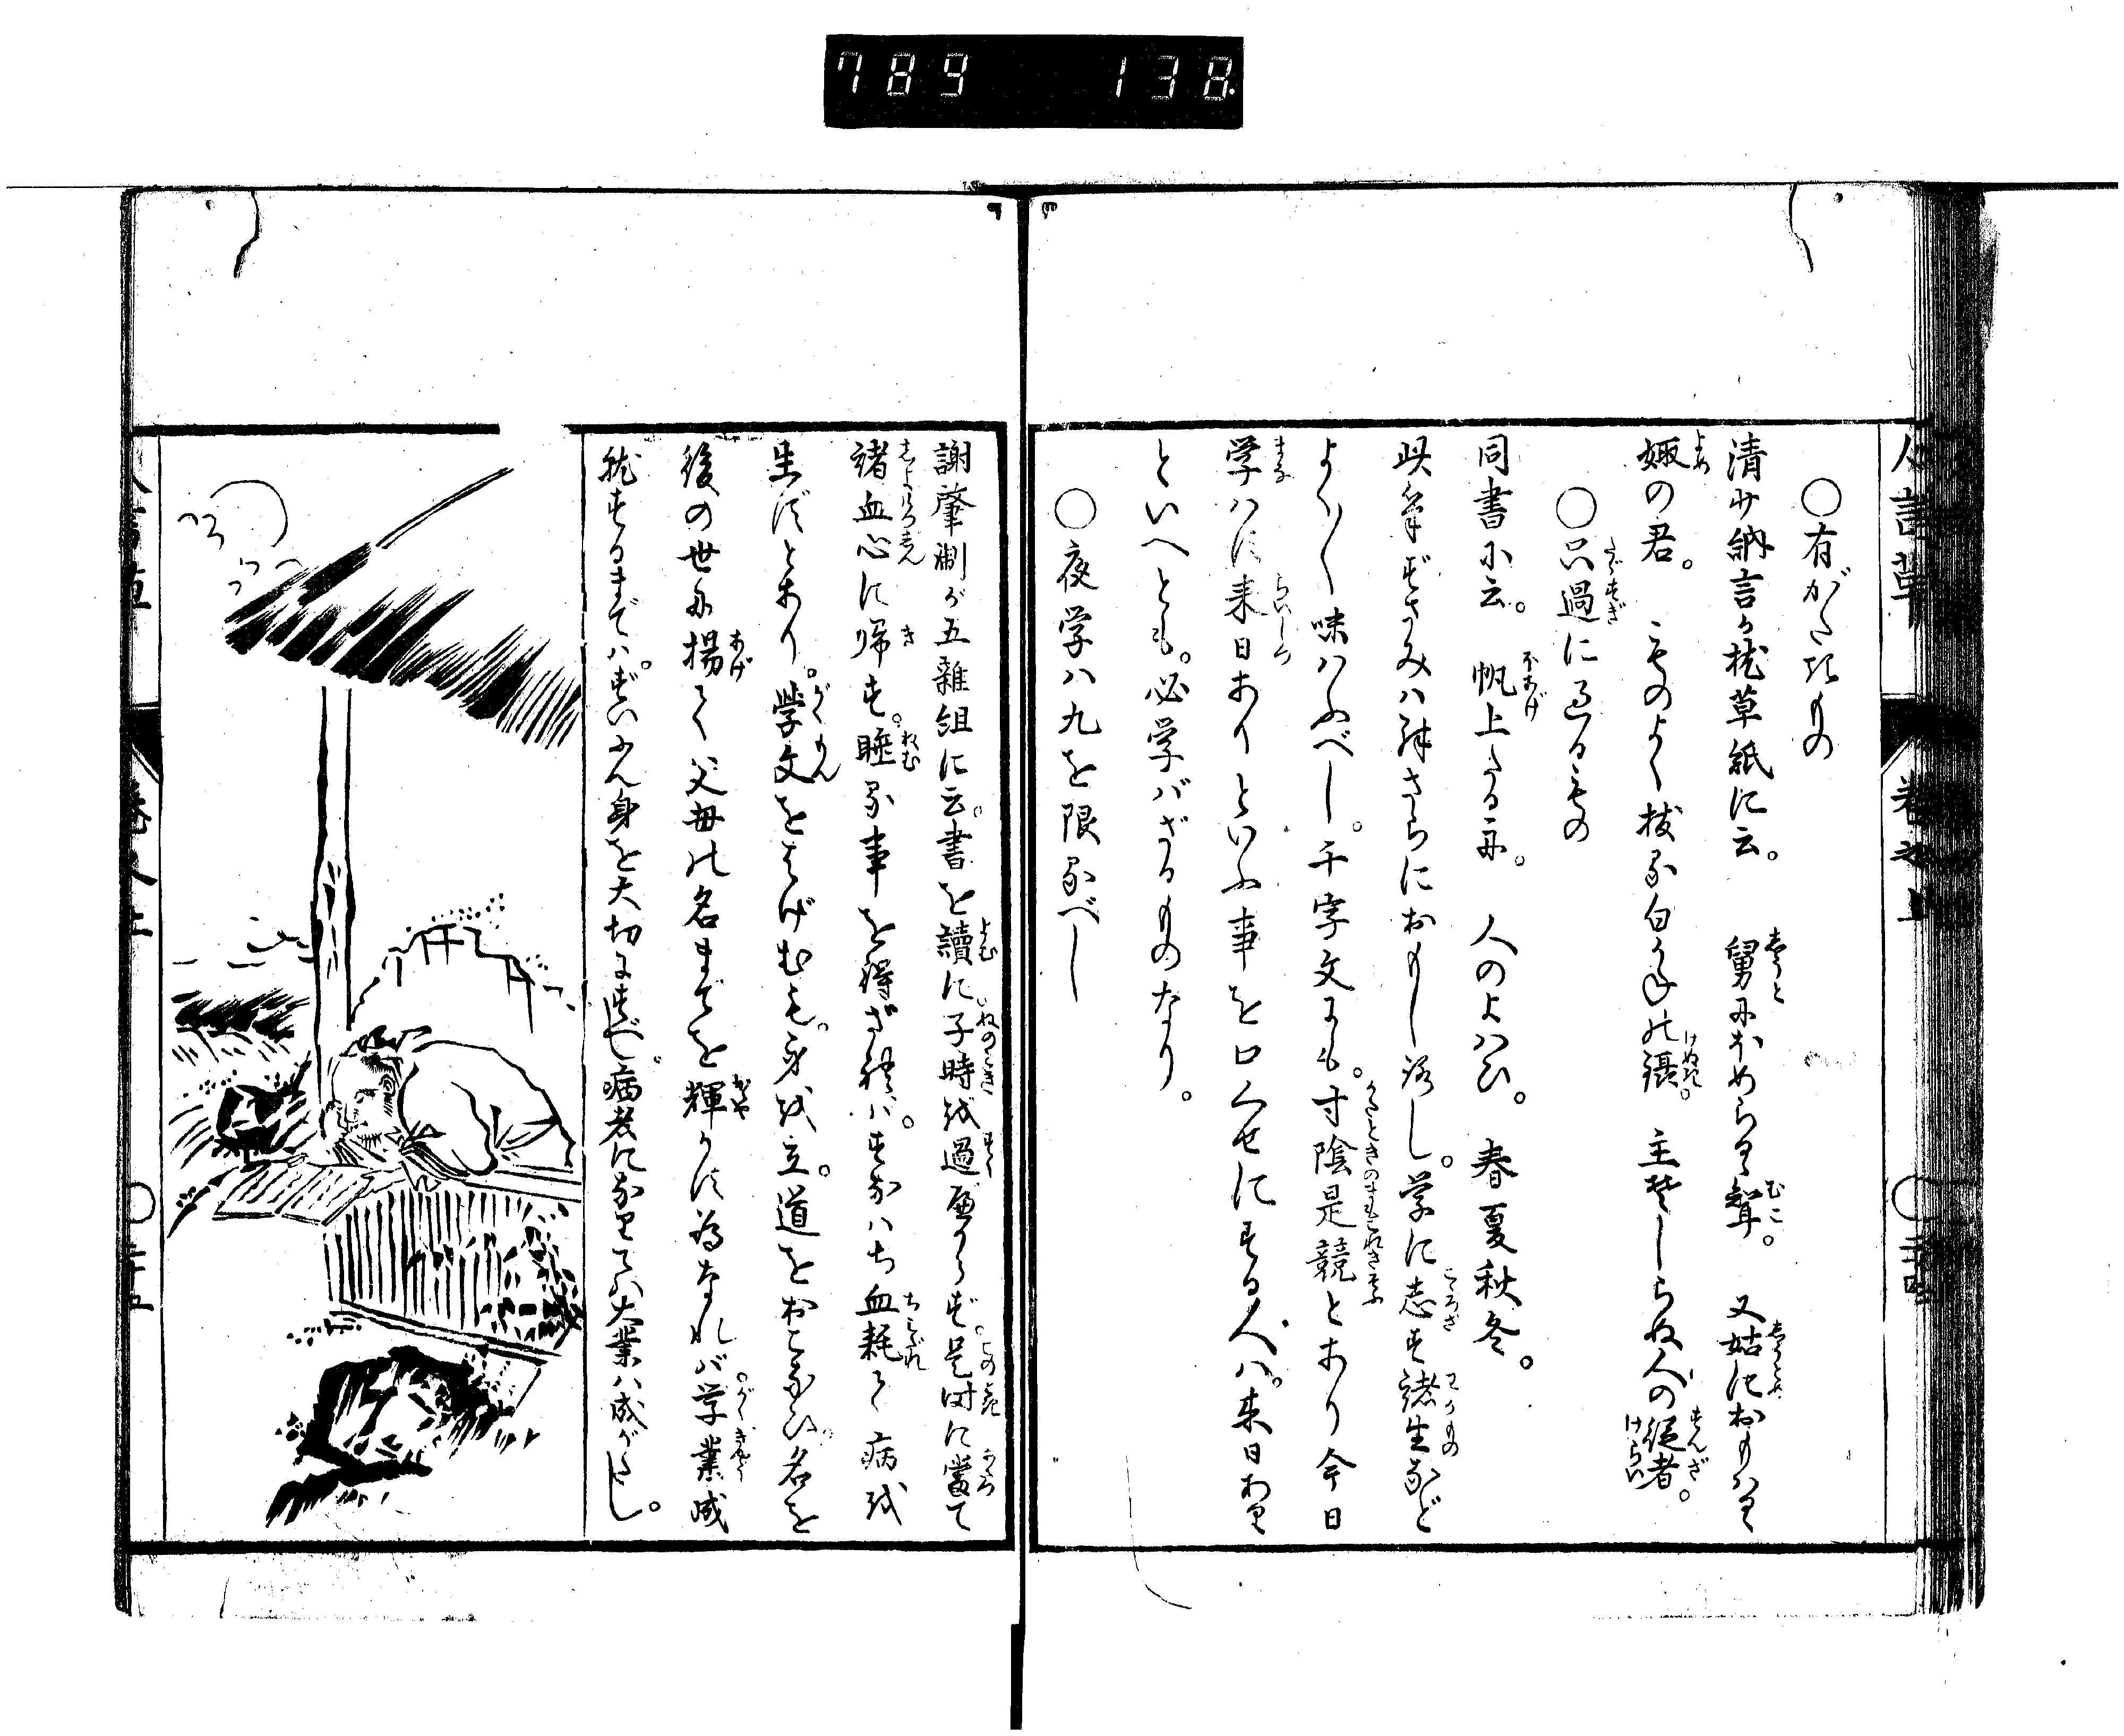 789 138
○有がたきもの
清少納言が枕草紙に云。 舅にほめらるゝ聟。 又姑におもはるゝ
娵の君。 ものよく抜る白かねの鑷。 主そしらぬ人の従者。
○只過に過るもの
同書に云。 帆上たる舟。 人のよはひ。 春夏秋冬。
此筆ずさみは殊さらにおもしろし。学に志す諸生など
よく〳〵味はふべし。千字文にも。寸陰是競とあり今日
学はず来日ありといふ事を口くせにする人は。来日あり
といへとも。必学バざるものなり。
○夜学ハ九を限るべし
謝肇淛が五雑組に云。書を讀に。子時を過べからず。是時に當て
諸血心に帰す。睡る事を得ざれバ。すなハち血耗て病を
生ずとあり。学文をはげむも。身を立。道をおこなひ。名を
後の世に揚て父母の名までを輝かさん為なれバ。学業成
就するまでハ。ずいふん身を大切にすべし。病者になりては大業ハ成がたし。